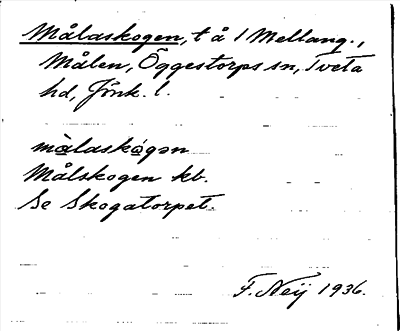 Målaskogen, t å 1 Mellang.,
Målen, Öggestorps sn, Tveta
hd, Jönk. l.
màlaskógən
Målskogen kb.
Se Skogatorpet.
F. Neij 1936.